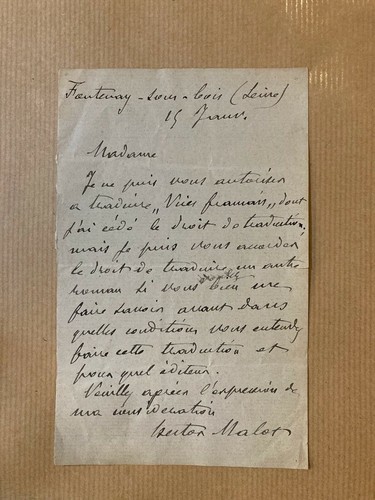 Fontenay-sous-bois (Seine)
15 Janv.
Madame
Je ne puis vous autoriser
a traduire "Vices français" dont
j'ai cédé le droit de traduction,
mais je puis vous accorder
le droit de traduire un autre
roman si vous me
faire savoir avant dans
quelles conditions vous entendez
faire cette traduction et
pour quel éditeur.
Veuillez agréer l'expression de
ma considération
Hector Malot